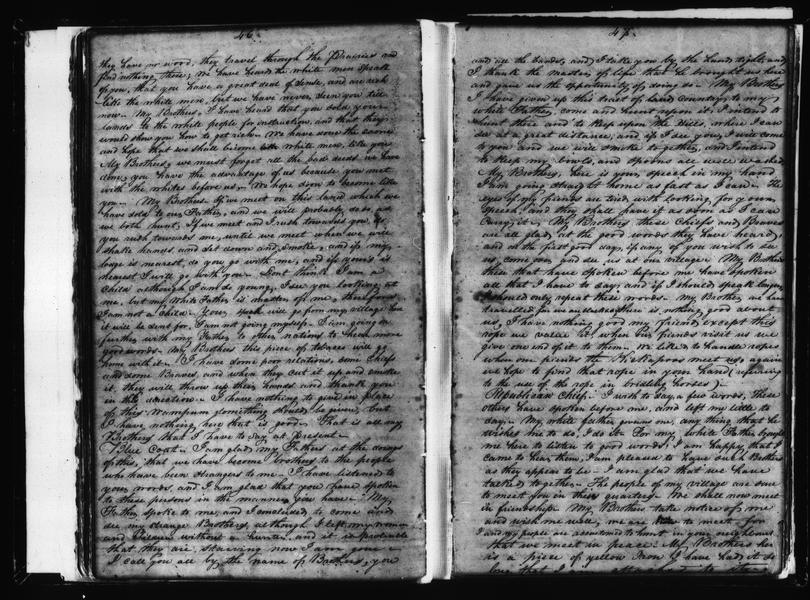 46.
they have no wood, they travel through the Prairies and
find nothing there; We have heard the white men speak
of you, that you have a great deal of sense, and are rich
like the white men, but we have never seen you till
now. My Brothers, I have heard that you sold your
lands to the white people for instruction, and that they
would show you how to get rich. We have done the same
and hope that we shall become like white men, like you
My Brothers, we must forget all the bad deeds we have
done, you have the advantage of us because you met
with the whites before us. We hope soon to become like
you. My Brothers If we meet on this land which we
have sold to our Father, and we will probably, as
we both hunt, if we meet and I rush towards you, do
you rush towards me, until we meet when we will
shake hands and set down and Smoke, and if my
lodge is nearest, do you go with me, and if yours is
nearest I will go with you. Dont think I am a
Child although I am so young, I see you looking at
me, but my White Father is master of me, therefore
I am not a Child. Your speech will go from my village for
it will be sent for, I am not going myself. I am going on
further with my Father to other nations to hear more
good words. My Brothers this piece of tobacco will go
home with it. I have some poor relations, some Chiefs
and some Braves, and when they cut it up and smoke
it, they will throw up their hands and thank you
in this direction. I have nothing to give in place
of this Wampum something should be given, but
I have nothing here that is good. That is all my
Brothers that I have to say at present.
Blue Coat. I am glad my Fathers at the doings
of this, that we have become brothers to the people
who have been strangers to me. I have listened to
your words, and I am glad that you have spoken
to these persons in the manner you have. My
Father spoke to me, and I concluded to come and
see my strange Brothers, although I left my women
and children without a hunter, and it is probable
that they are starving now I am gone.
I call you all by the name of Brothers, you
47.
and all the bands, and I take you by the hand tight, and
I thank the master of life that he brought us here
and gave us the opportunity of doing so. My Brothers
I have given up this tract of land Country to my
white Father, come and hunt upon it; I intend to
hunt there and to keep upon the hills, where I can
see at a great distance, and if I see you, I will come
to you and we will smoke together, and I intend
to keep my bowls, and spoons all well washed
My Brothers, here is your speech in my hand
I am going straight home as fast as I can. The
eyes of my friends are tired with looking for your
speech, and they shall have it as soon as I can
Carry it. My Brothers these Chiefs and Braves
are all glad at the good words they have heard
and on the first good day, if any of you wish to see
us, come on and see us at our village. My Brothers
these that have spoken before me have spoken
all that I have to say, and if I should speak longer,
I should only repeat these words. My Brother, we have
travelled far there is nothing good about
us, I have nothing good my friend, except this
rope we value it, when our friends visit us we
give one end of it to them. We like to handle ropes
when our friends the Kickapoos meet us, again
we hope to find that rope in your hand (referring
to the use of the rope in bridling horses).
Republican Chief. I wish to say a few words, These
others have spoken before me, and left my little to
say. My white father owns me, any thing that he
wishes me to do, I do it. For my white Father brought
me here to listen to good words; I am happy that I
came to hear them, I am pleased to have such Brothers
as they appear to be. I am glad that we have
talked together. The people of my village are sure
to meet you in these quarters. We shall now meet
in friendship. My Brothers take notice of me
and wish me well, we are to meet, for
I and my people are accustomed to hunt in your neighborhood
that we meet in peace. My Brothers here
is a piece of yellow Iron I have had it so
long that